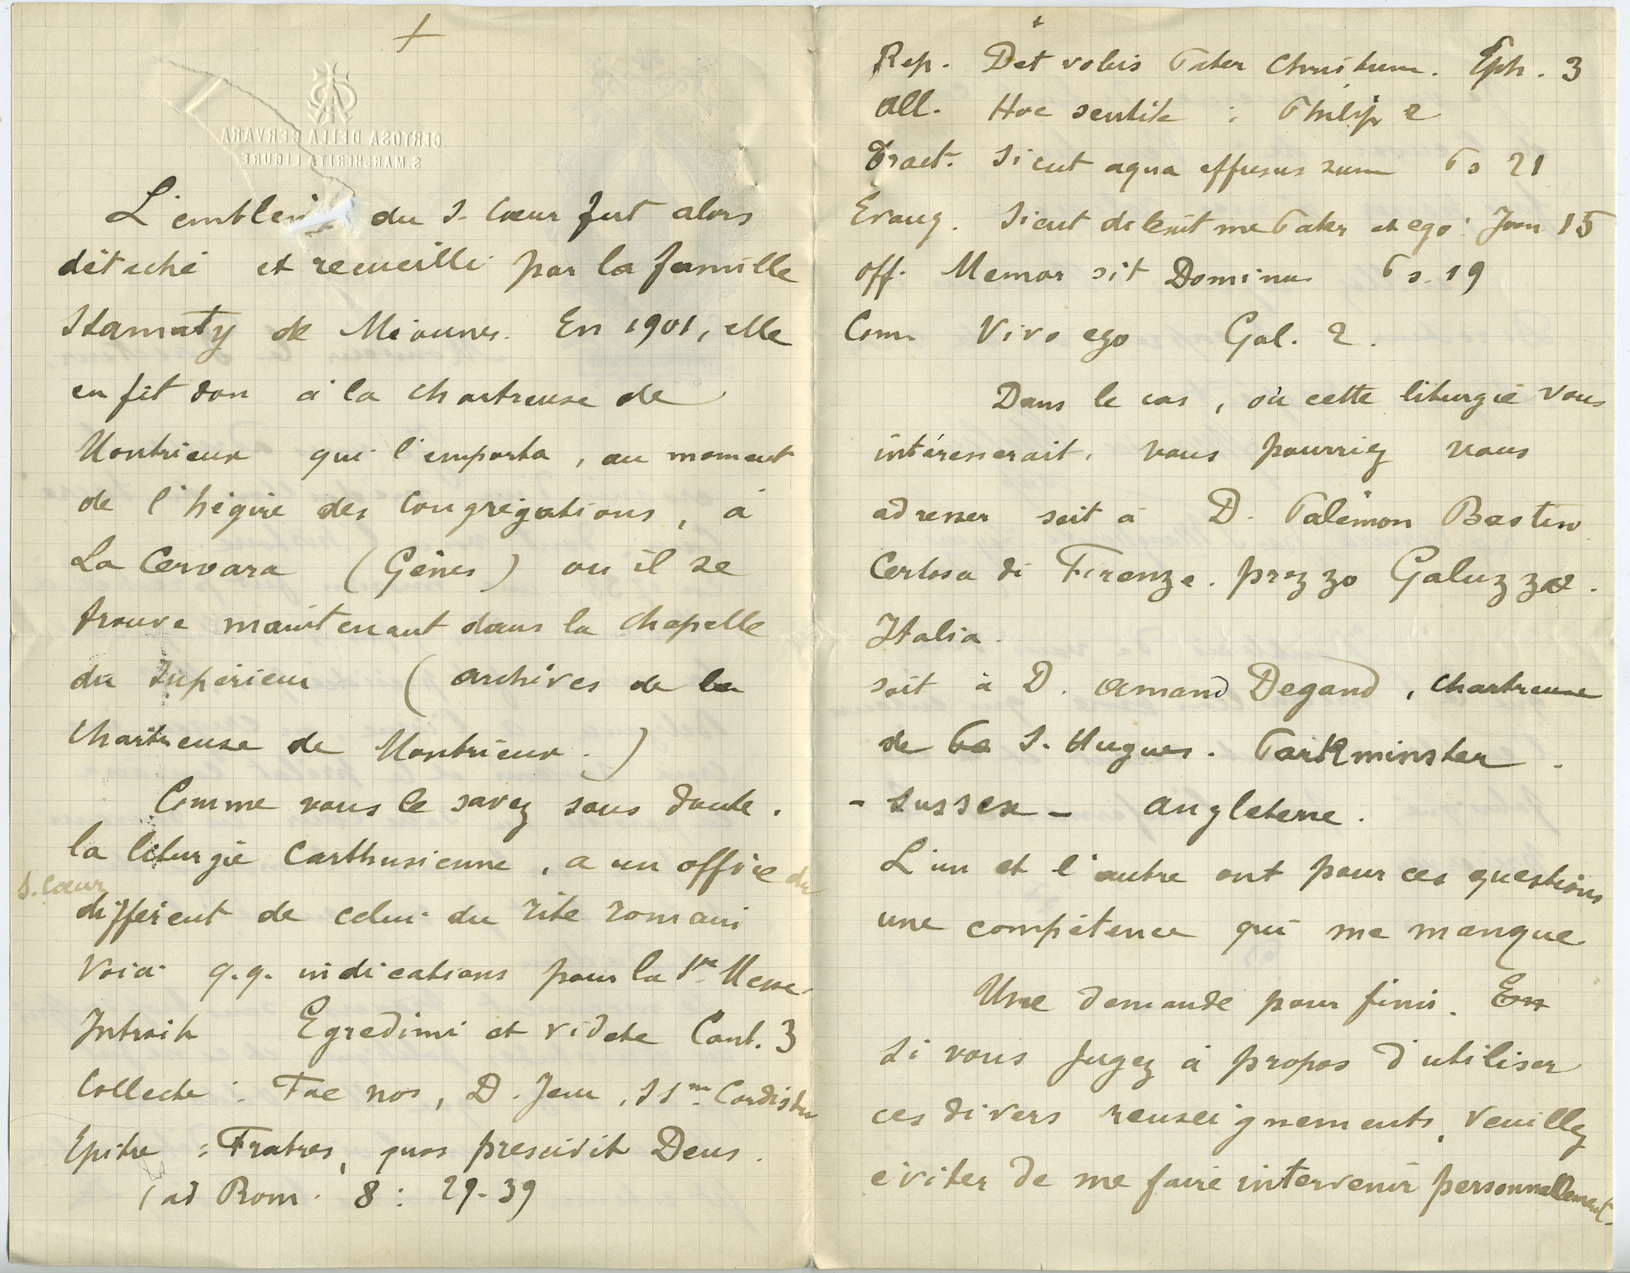 +
CERTOSA DELLA CERVARA
S. MARGHERITA LIGURE
L'emblem du S. Cœur fut alors
détaché et recueilli par la famille
Stamaty de Méounes. En 1901, elle
en fit don à la chartreuse de
Montrieux qui l'emporta, au moment
de l'hégire des Congrégations, à
La Cervara (Gênes) où il se
trouve maintenant dans la chapelle
du Supérieur (archives de la
chartreuse de Montrieux.)
Comme vous le savez sans doute,
la liturgie Carthusienne, a un office du
S. Cœur
différent de celui du rite romain
Voici q.q. indications pour la Ste Messe
Introit Egredimi et videte Cant. 3
Collecte : Fac nos, D. Jesu, SSmi Cordis tui
Epitre : Fratres, quos prescivit Deus.
(ad Rom. 8 : 29-39
+
Rep. Det vobis Pater Christum. Eph. 3
All. Hoc sentite : Philip 2
Tract. Sicut aqua effusus sum Ps 21
Evang. Sicut dilexit me Pater et ego : Joan 15
Off. Memor sit Dominus Ps. 19
Com Vivo ego Gal. 2.
Dans le cas, où cette liturgie vous
intéresserait, vous pourriez vous
adresser soit à D. Palémon Bastin
Certosa di Firenze. prezzo Galuzzo.
Italia.
soit à D. Amand Degand, chartreuse
de S. Hugues. Parkminster.
- Sussex - Angleterre.
L'un et l'autre ont pour ces questions
une compétence qui me manque
Une demande pour finir. En
Si vous jugez à propos d'utiliser
ces divers renseignements, veuillez
éviter de me faire intervenir personnellement.